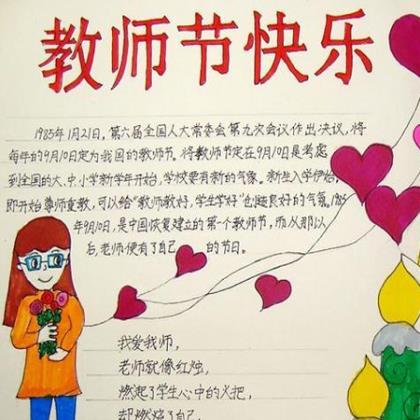 教师节快乐
1985年1月21日,第六届全国人大常委会第九次会议作出决议,将
每年的9月10日定为我国的教师节。将教师节定在9月10日是考虑
到全国的大、中、小学新学年开始,学校要有新的气象。新生入学伊始,
即开始尊师重教,可以给"教师教好,学生学好"创造良好的气氛。1985
年9月10日,是中国恢复建立的第一个教师节,而从那以
后,老师便有了自己 的节日。
我爱我师,
老师就像红烛,
燃起了学生心中的火把,
却燃掉了自己